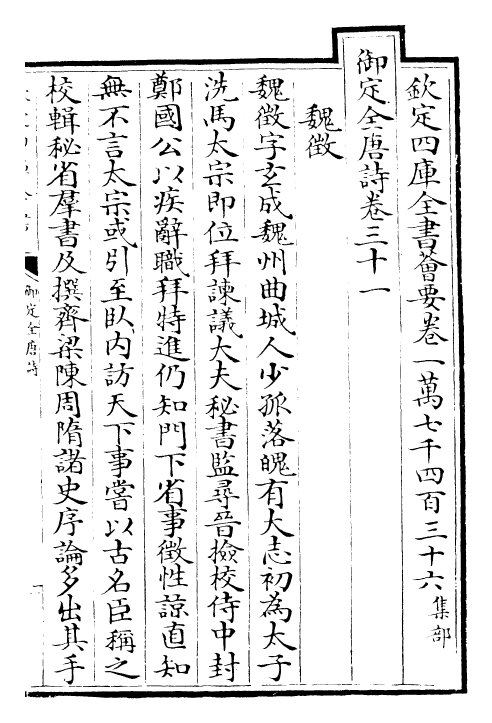 欽定四庫全書薈要卷一萬七千四百三十六集部
御定全唐詩卷三十一
魏徵
魏徵字玄成魏州曲城人少孤落魄有大志初為太子
洗馬太宗即位拜諫議大夫秘書監尋晉撿校侍中封
鄭國公以疾辭職拜特進仍知門下省事徵性諒直知
無不言太宗或引至臥内訪天下事嘗以古名臣稱之
校輯秘省羣書及撰齊梁陳周隋諸史序論多出其手
御定全唐詩